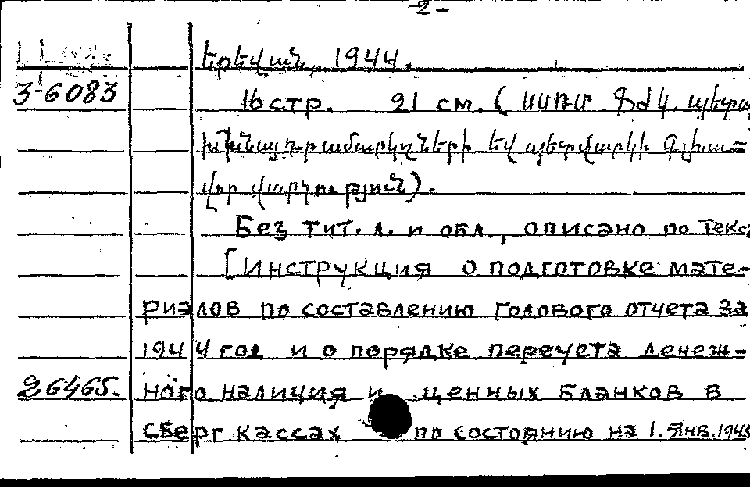 -2-
Երեվան, 1944.
3-6083
16 стр. 21 см. (ՍՍՌՄ ՖԺԿ. պետա
խնայդրամարկղների եվ պետվարկի Գլխա-
վոր վարչություն).
Без тит. л. и обл., описано по текс
[Инструкция о подготовке мате-
риалов по составлению годового отчета за
1944 год и о порядке переучета денеж-
26465. ного наличия и ценных бланков в
сберг кассах по состоянию на 1. Янв. 1945